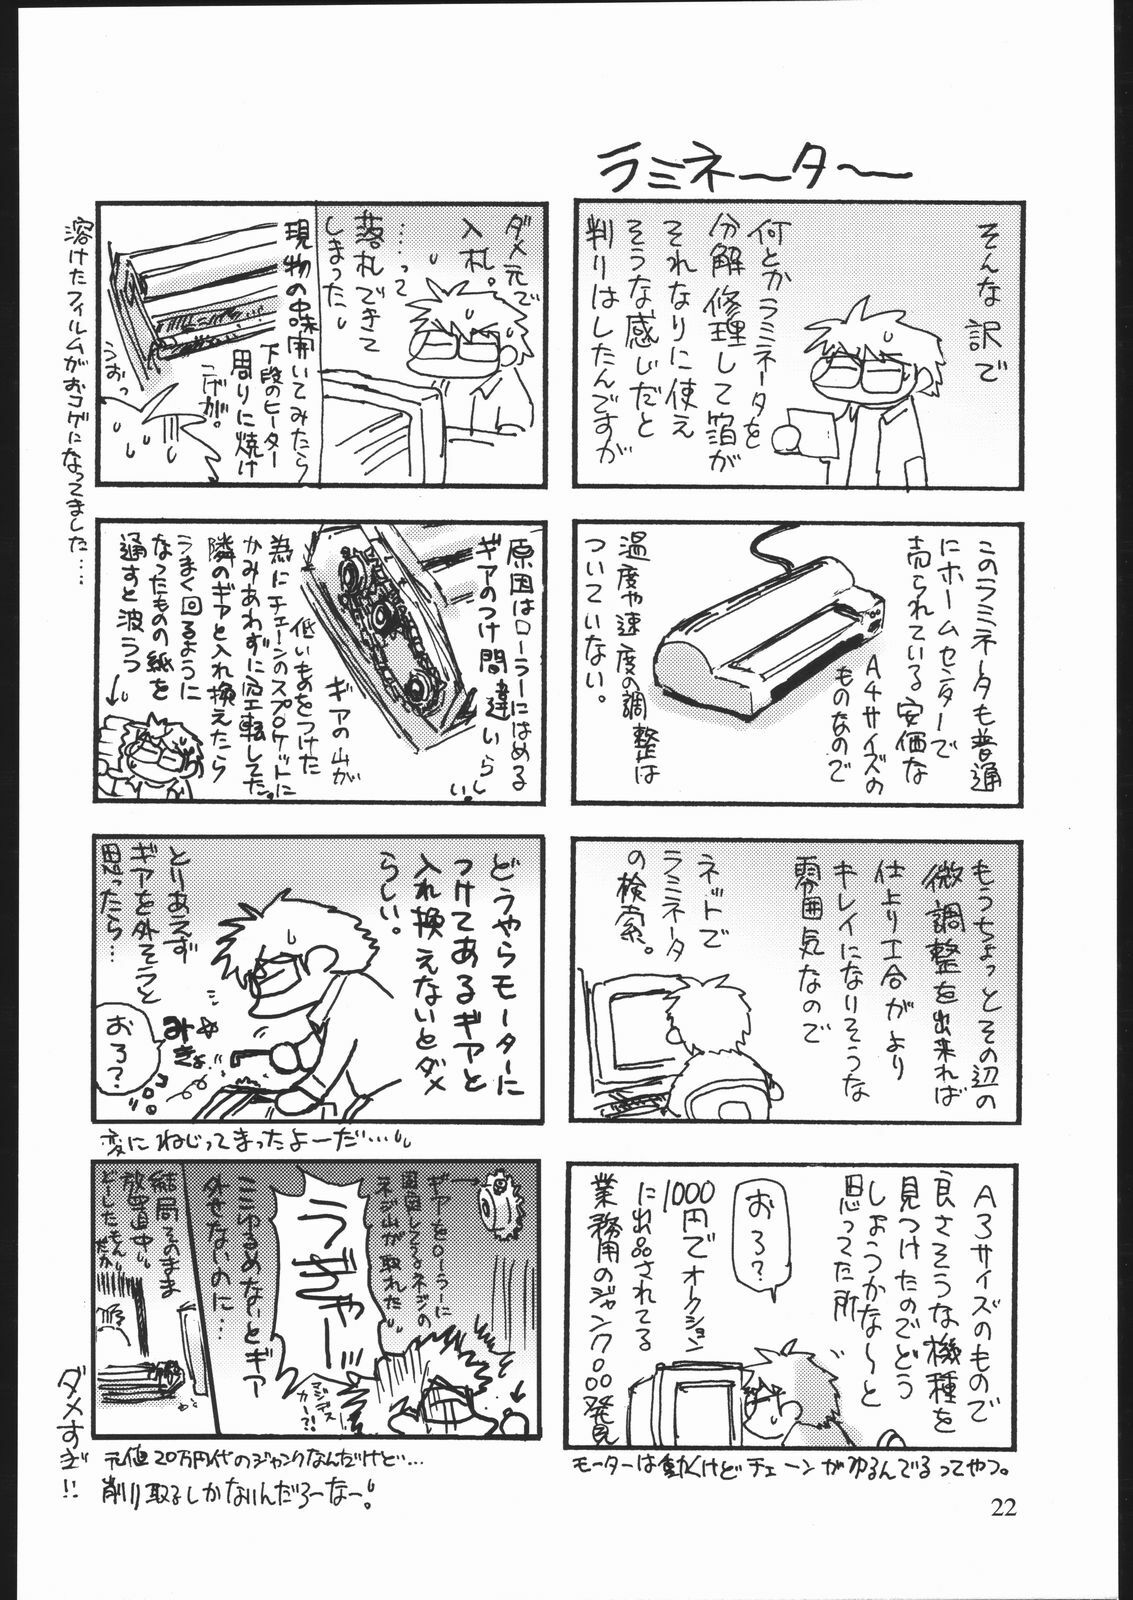 ラミネ～タ～
そんな訳で
何とかラミネータを
分解修理して箔が
それなりに使え
そうな感じだと
判りはしたんですが
このラミネータも普通
にホームセンターで
売られている安価な
A4サイズの
ものなので
温度や速度の調整は
ついていない。
もうちょっとその辺の
微調整を出来れば
仕上り工合がより
キレイになりそうな
雰囲気なので
ネットで
ラミネータ
の検索。
A3サイズのもので
良さそうな機種を
見つけたのでどう
しようかな～と
思ってた所
おろ?
1000円でオークション
に出品されてる
業務用のジャンク品発見
モーターは動くけどチェーンがゆるんでるってやつ。
ダメ元で
入札。
……って
落札できて
しまった。
現物の中味開いてみたら
下段のヒーター
周りに焼け
こげが。
うおっ
溶けたフィルムがおコゲになってました……
原因はローラーにはめる
ギアのつけ間違いらしい。
ギアの山が
低いものをつけた
為にチェーンのスプロケットに
かみあわずに空転してた。
隣のギアと入れ換えたら
うまく回るように
なったものの紙を
通すと波うつ
どうやらモーターに
つけてあるギアと
入れ換えないとダメ
らしい。
とりあえず
ギアを外そうと
思ったら…
みきょ
おろ?
変にねじってまったよーだ…
ギアをローラーに
固定してるネジの
ネジ山が取れた
うぎゃー
マジデスカー?!
ここゆるめないとギア
外せないのに…
結局そのまま
放置中。
どーしたもんだか
元値20万円代のジャンクなんだけど…
削り取るしかないんだろーなー。
ダメすぎ!!
22